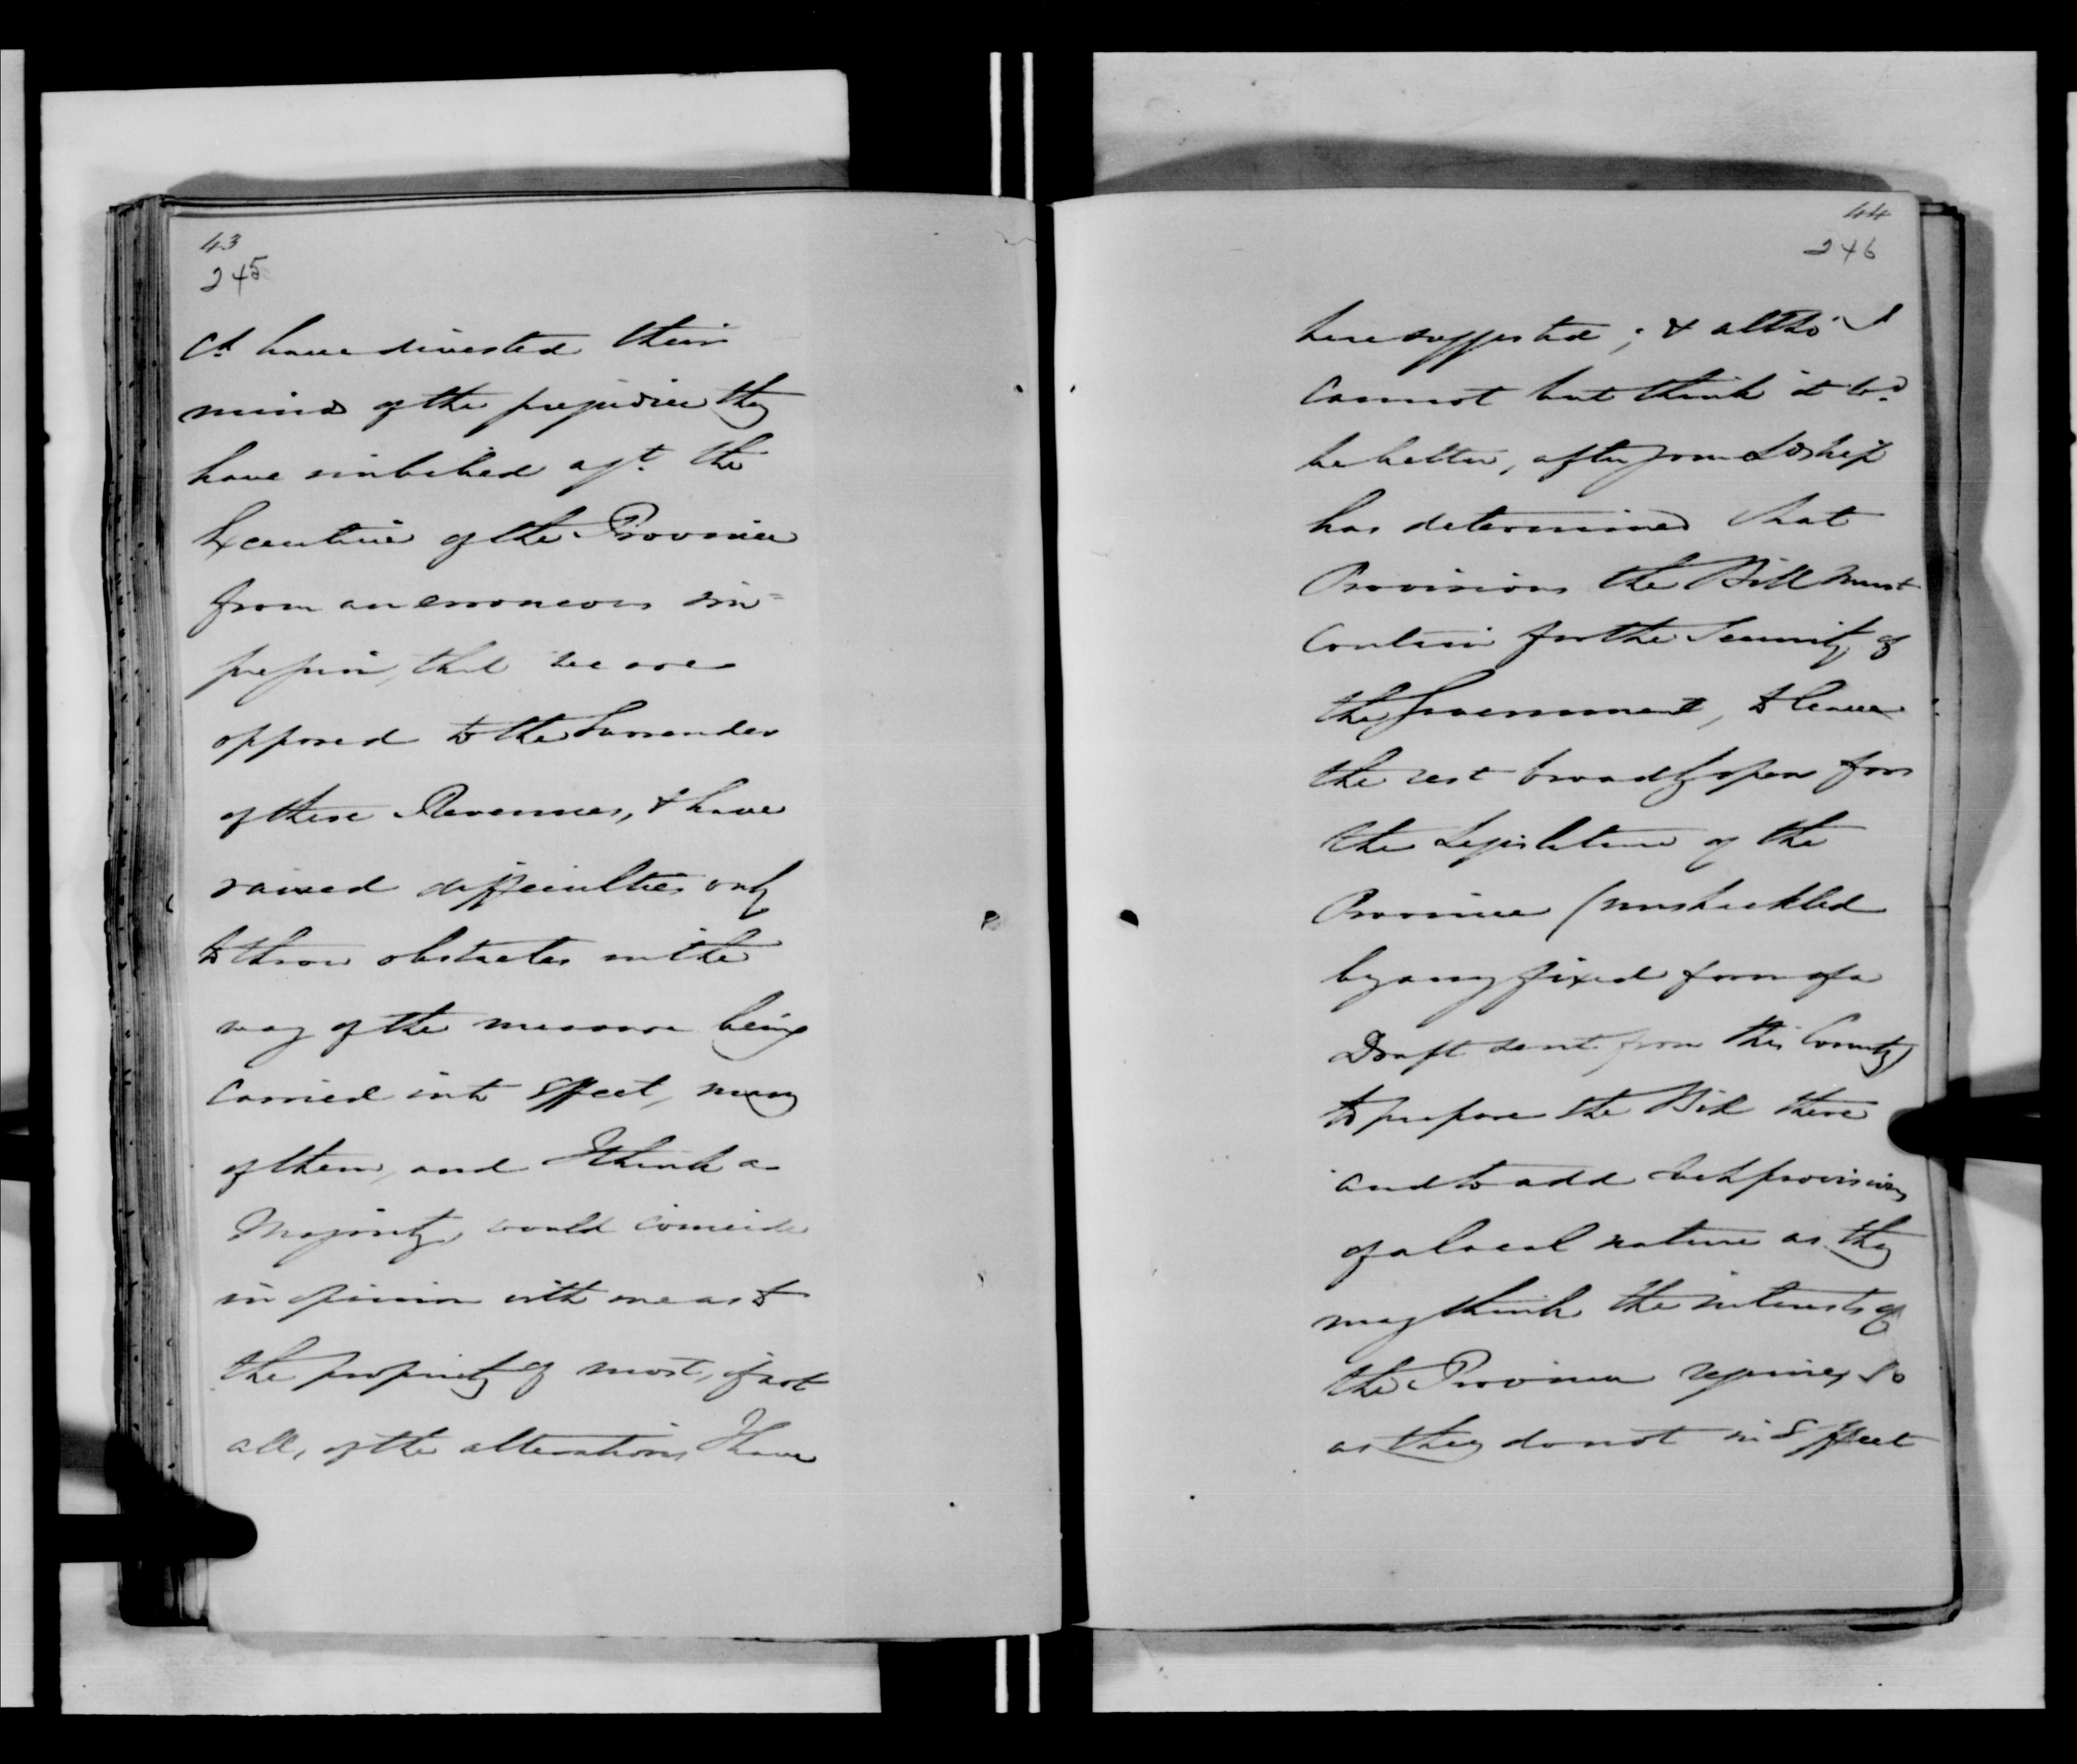 43
245
Cd. have divested their
minds of the prejudice they
have imbibed agt. the
Executive of the Province
from an erroneous im=
pression, that we are
opposed to the Surrender
of these Revenues, & have
raised difficulties only
to throw obstacles in the
way of the measure being
carried into effect, many
of them, and I think a
Majority, would coincide
in opinion with me as to
the propriety of most, if not
all, of the alterations I have
44
246
here suggested; & altho' I
cannot but think it wd.
be better, after your Lordship
has determined what
Provisions the Bill must
contain for the Security of
the Government, to leave
the rest broadly open for
the Legislature of the
Province (unshackled
by any fixed form of a
Draft sent from this Country)
to prepare the Bill there
and to add such provisions
of a local nature as they
may think the interests of
the Province require, so
as they do not in Effect